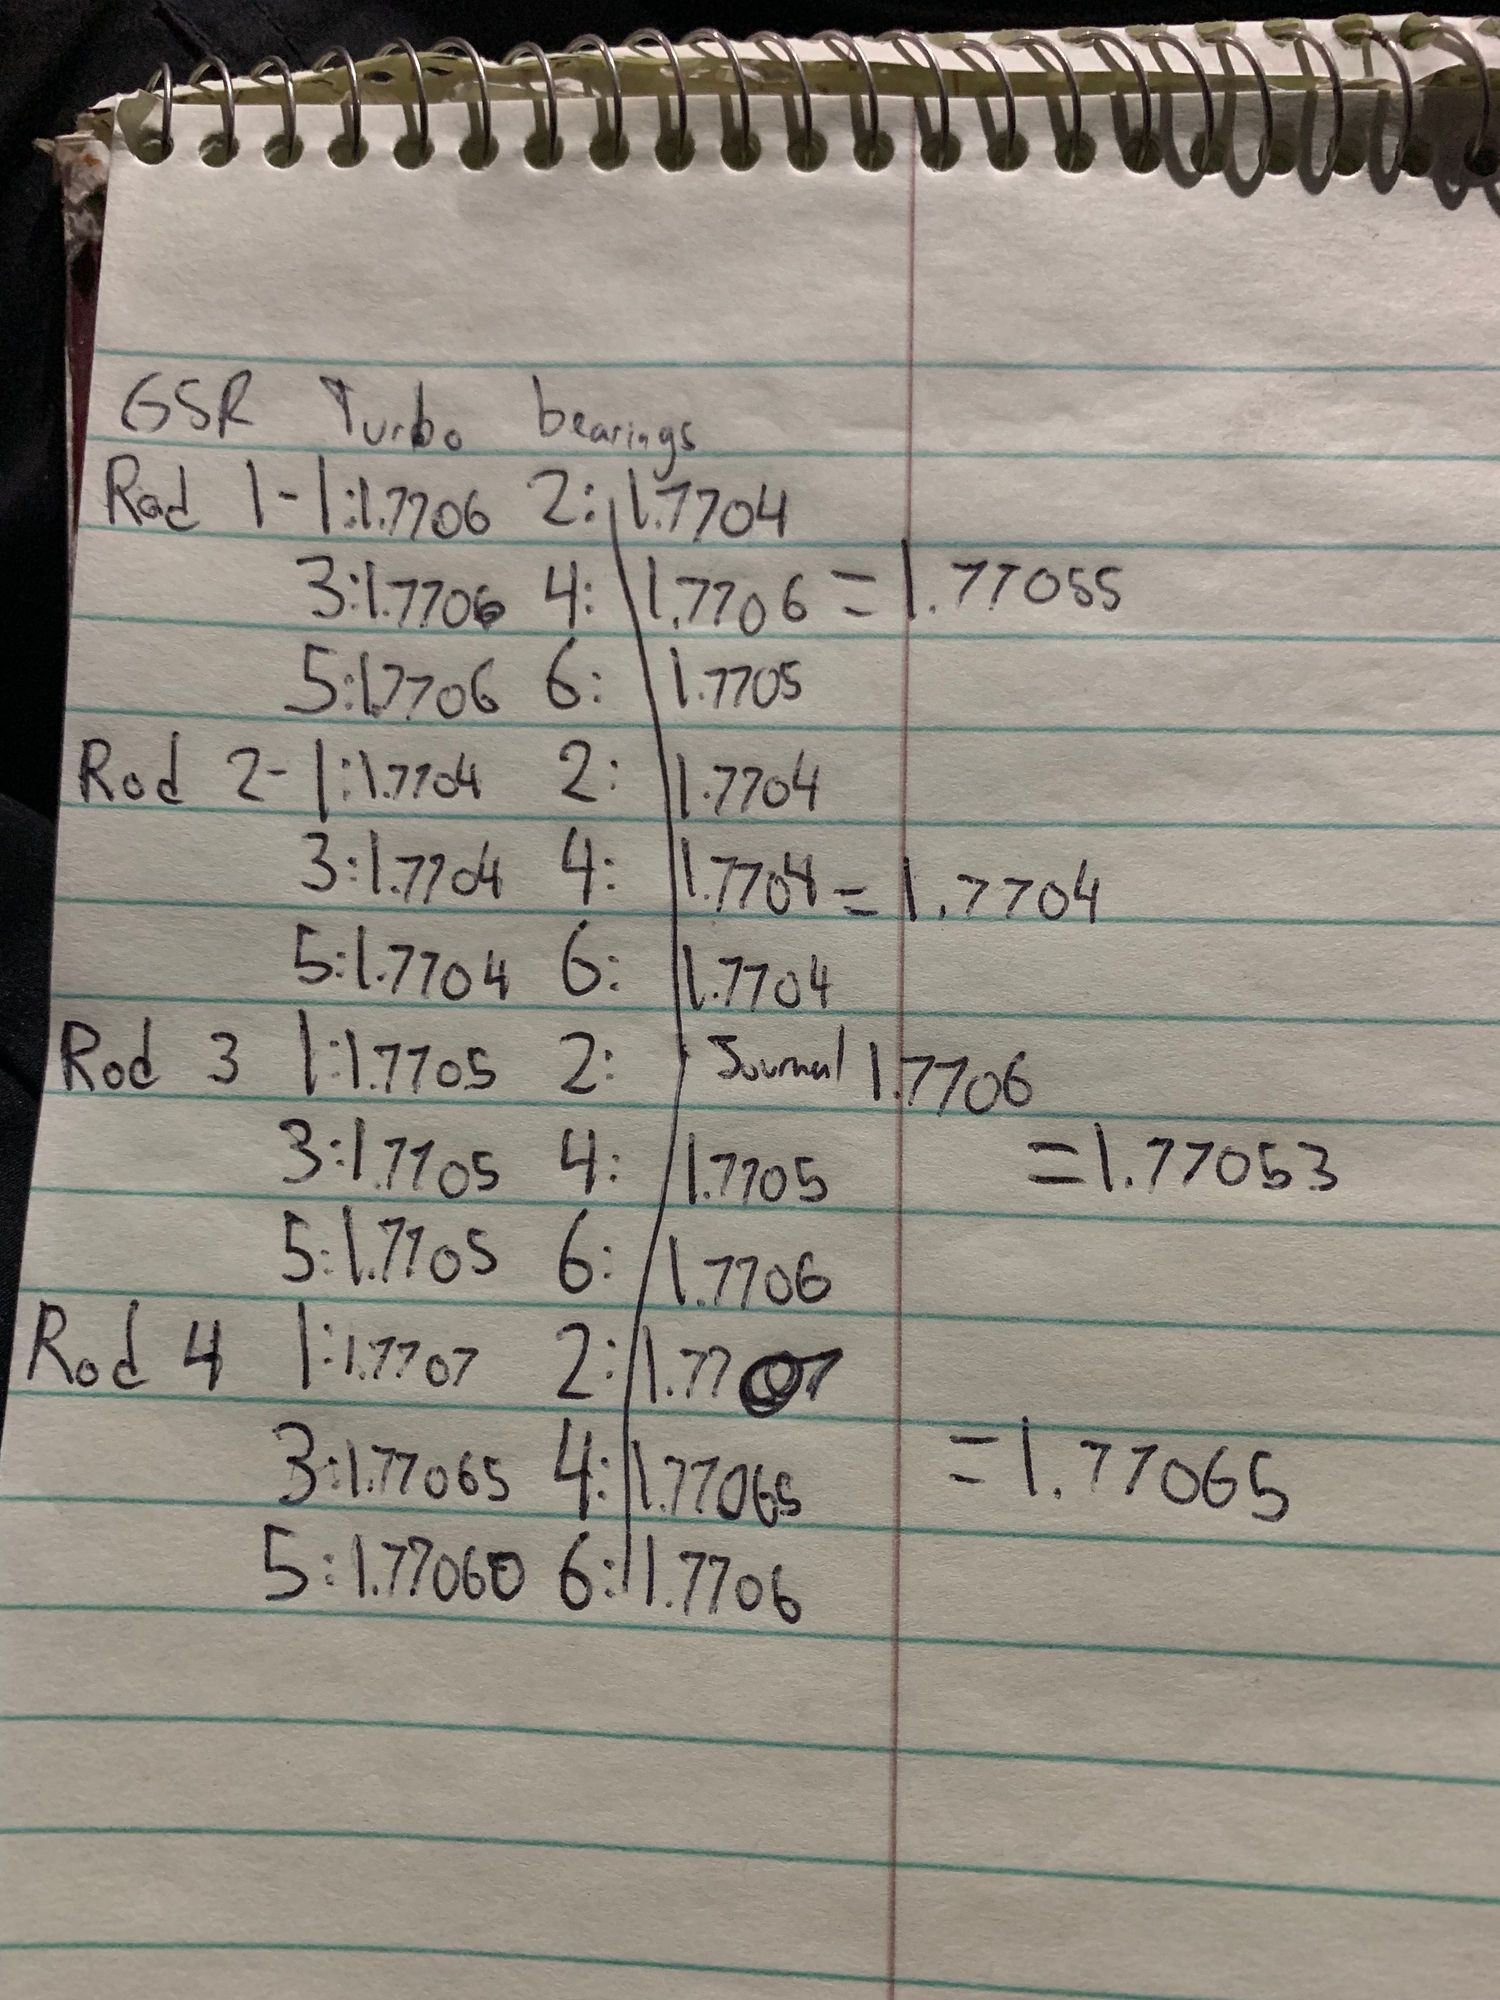 GSR Turbo bearings
Rod 1-1:1.7706 2: 1.7704
3:1.7706 4: 1.7706 = 1.77055
5:1.7706 6: 1.7705
Rod 2-1:1.7704 2: 1.7704
3:1.7704 4: 1.7704 = 1.7704
5:1.7704 6: 1.7704
Rod 3 1:1.7705 2: Journal 1.7706
3:1.7705 4: 1.7705 =1.77053
5:1.7705 6: 1.7706
Rod 4 1:1.7707 2: 1.7707
3:1.77065 4: 1.77065 =1.77065
5:1.77060 6: 1.7706